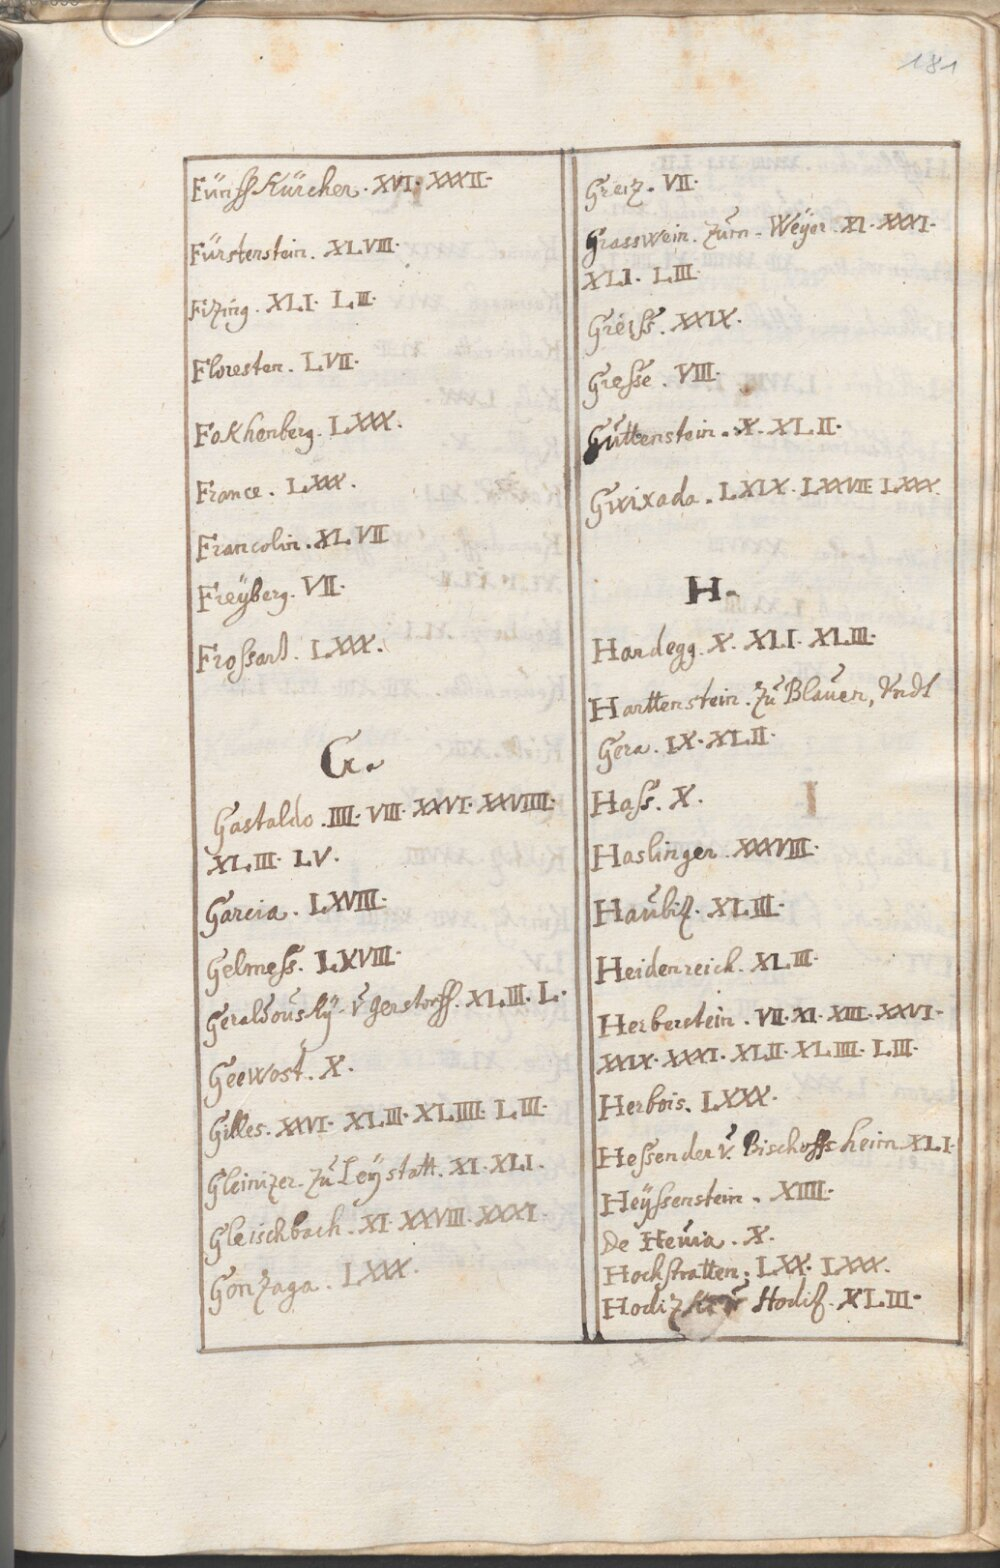 181
Fünff Kürchen. XVI. XXXII.
Fürstenstein. XLVIII.
Fizing. XLI. LII.
Floresten. LVII.
Fokhenberg. LXXX.
France. LXXX.
Francolin. XLVII
Freÿberg. VII.
Frossard. LXXX.
G.
Gastaldo. IIII. VIII. XXVI. XXVIIII.
XLIII. LV.
Garcia. LXVIII.
Gelmess. LXVIII.
v Gerstorff. XLIII. L.
Geewost. X.
Gilles. XXVI. XLIII. XLIIII. LIII.
Gleinizer. Zu Leÿstatt. XI. XLI.
Gleischbach. XI. XXVIII. XXXI.
Gonzaga. LXXX.
Graiz. VII.
Grasswein. Zum Weÿer. XI. XXXI.
XLI. LIII.
Greiss. XXIX.
Gresse. VIII.
Guttenstein. X. XLII.
Gwixada. LXIX. LXXVII LXXX.
H.
Hardegg. X. XLI. XLIII.
Harttenstein. Zu Blauen, Vndt
Gera. IX. XLII.
Hass. X.
Haslinger. XXXVIII.
Haubiz. XLIII.
Heidenreich. XLIII.
Herberstein. VII. XI. XIII. XXVI.
XXIX. XXXI. XLII. XLIIII. LIII.
Herbois. LXXX.
Hessender v. Bischoffsheim XLI.
Heÿssenstein. XIIII.
De Heuia. X.
Hochstratten. LXX. LXXX.
Hodiz Hodiz. XLIII.